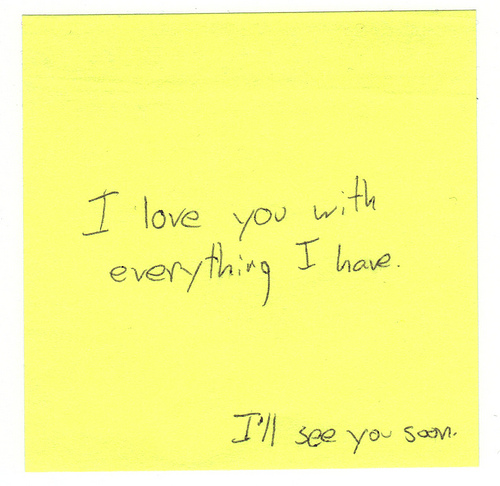 I love you with
everything I have.
I'll see you soon.